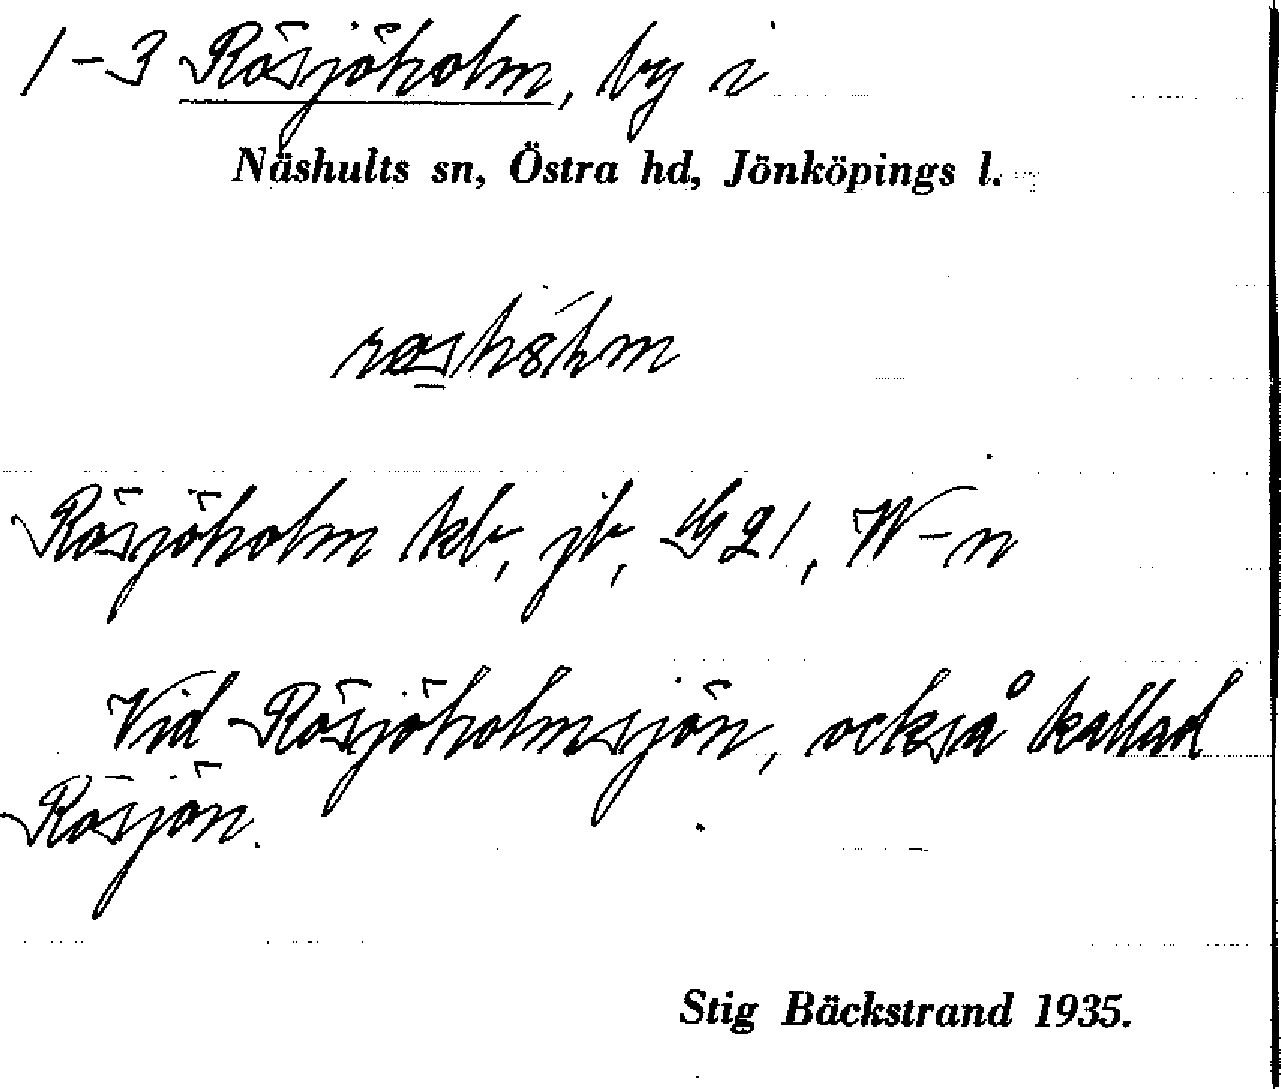 1-3 Rösjöholm, by i
Näshults sn, Östra hd, Jönköpings l.
Rösjöholm kb, jb, 21, W-n
Vid Rösjöholmsjön, också kallad
Rösjön.
Stig Bäckstrand 1935.